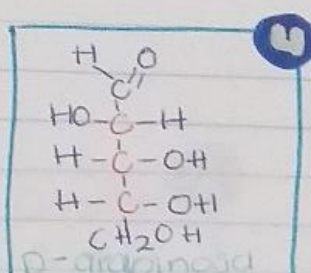 H O
C
HO-C-H
H-C-OH
H-C-OH
CH2OH
D-arabinosa